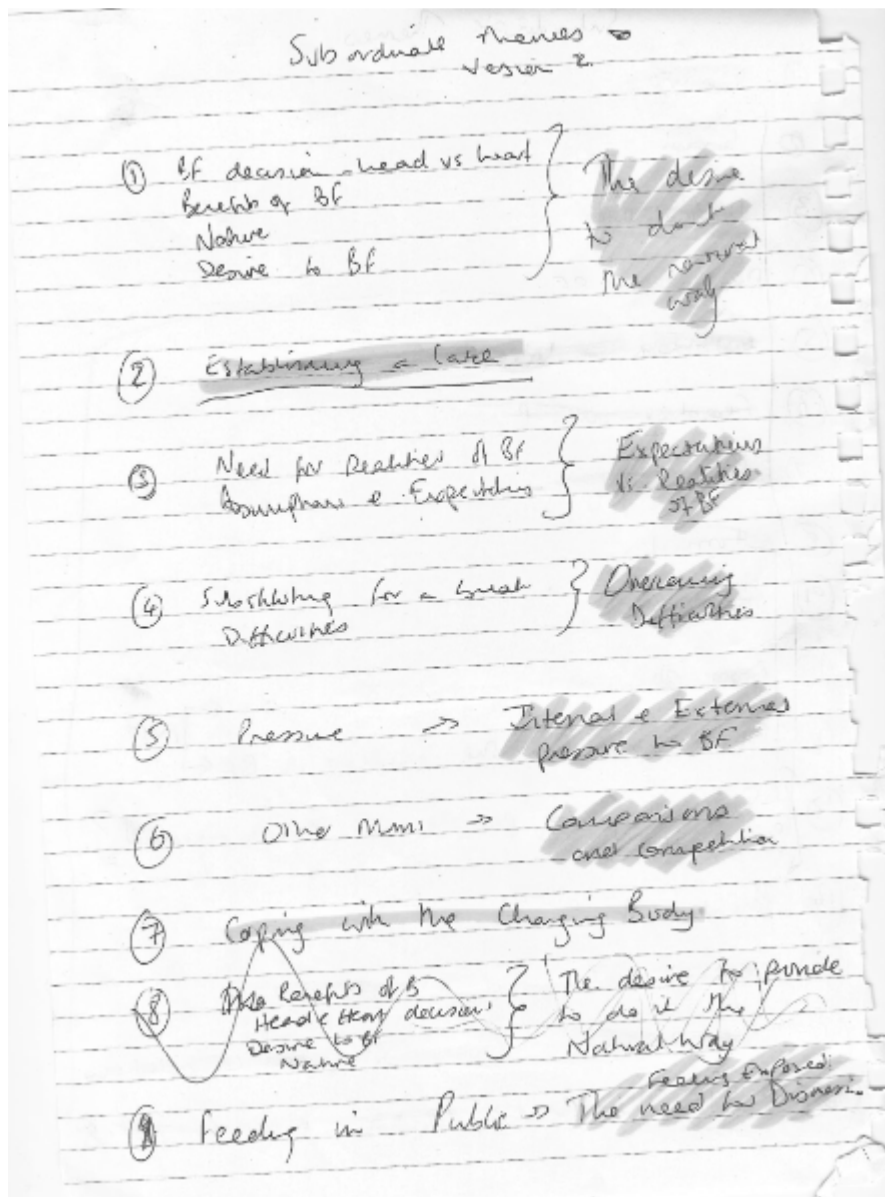 Subordinate Themes
Version 2
① BF decision - head vs heart
Benefits of BF
Nature
Desire to BF
The desire
to do it
the natural
way
② Establishing a
③ Need for Realities of BF
Assumptions & Expectations
Expectations
vs. Realities
of BF
④ Substituting for a break
Difficulties
Overcoming
Difficulties
⑤ Pressure → Internal & External
pressure to BF
⑥ Other Mums → Comparisons
and competition
⑦ Coping with the Changing Body
⑧ Benefits of B
Head & Heart decisions
Desire to BF
Nature
The desire to provide
to do it the
Natural Way
Feeling Exposed:
Feeding in Public → The need for